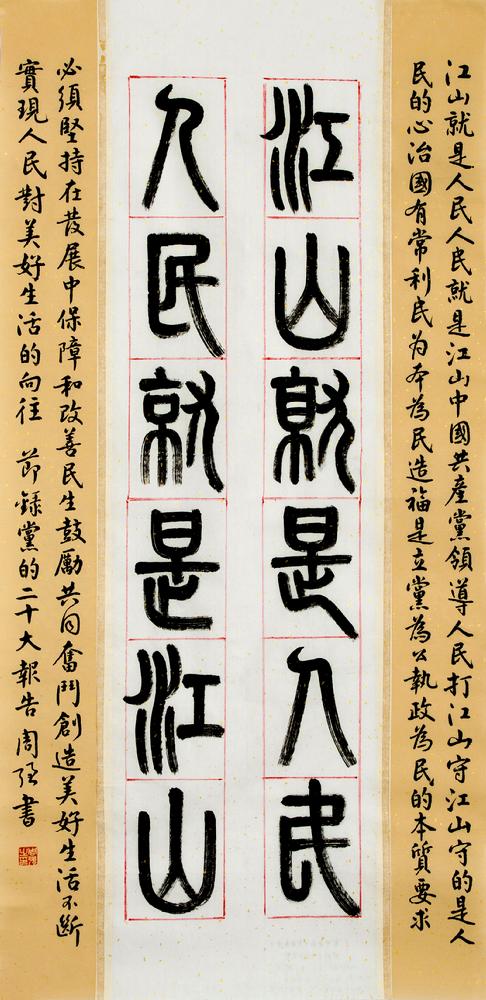 江山就是人民人民就是江山中國共產黨領導人民打江山守江山守的是人
民的心治國有常利民为本為民造福是立黨為公執政為民的本質要求
江山就是人民
人民就是江山
必須堅持在發展中保障和改善民生鼓勵共同奮鬥創造美好生活不斷
實現人民對美好生活的向往 節錄黨的二十大報告 周强書